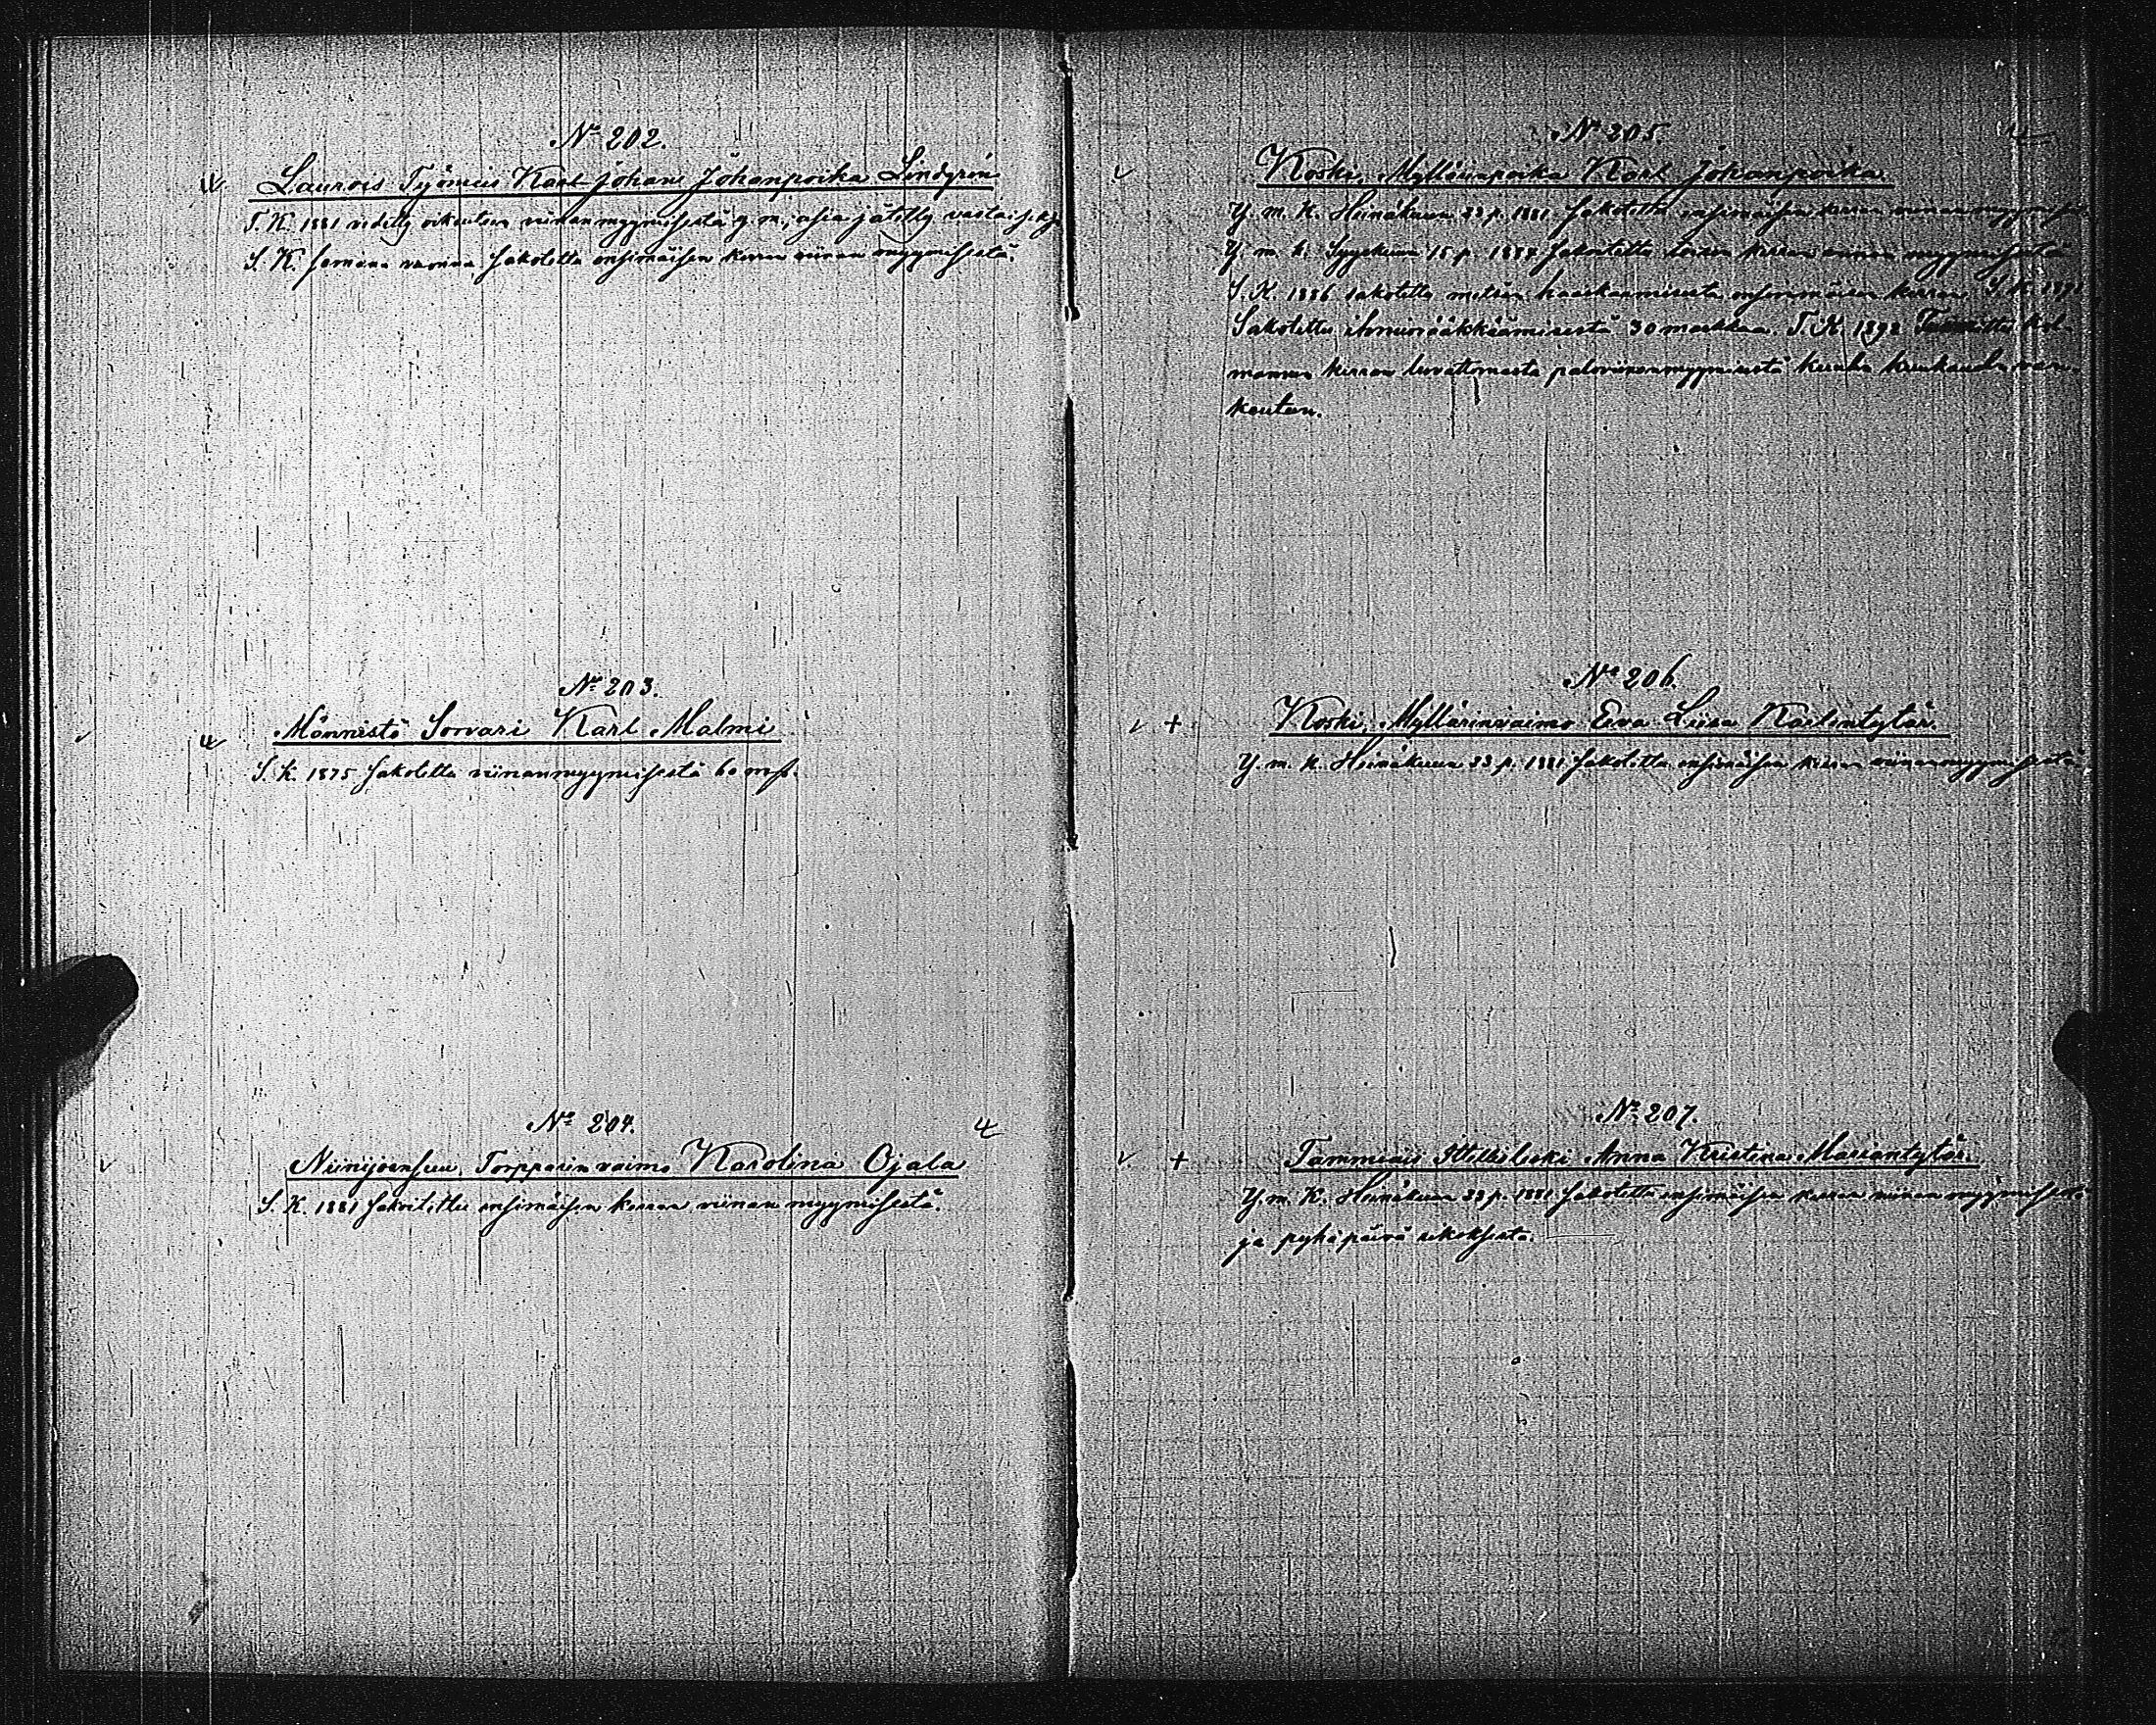 № 202.
Laurois Työmies Karl Johan Johanpoika Lindgrén
T. K. 1881 vedetty oikeuteen viinan myymisestä y. m., asia jätetty vastaiseksi
S. K. samana vuonna sakotettu ensimäisen kerran viinan myymisestä.
№ 203.
Männistö Sorvari Karl Malmi
S. K. 1875 sakotettu viinanmyymisestä 60 mk.
№ 204.
Niinijoensuu, Torpparin vaimo Karolina Ojala
S. K. 1881 sakotettu ensimäisen kerran viinan myymisestä.
№ 205.
Koski, Mylläripoika Karl Johanpoika
Y. m. K. Heinäkuun 23 p. 1881 sakotettu ensimäisen kerran viinan myymisestä
Y. m. k. Syyskuun 15 p. 1884 sakotettu toisen kerran viinan myymisestä
S. K. 1886 sakotettu metsän haaskaamisesta ensimmäisen kerran. S. K. 1891
Sakotettu ihmisrääkkäämisestä 30 markkaa. T. K. 1892 Tuomittu kol-
mannen kerran luvattomasta paloviinanmyymisestä kuuden kuukauden van-
keuteen.
№ 206.
Koski, Myllärinvaimo Eeva Liisa Karlentytär.
Y. m. K. Heinäkuun 23 p. 1881 sakotettu ensimäisen kerran viinanmyymisestä
№ 207.
Tammiais Itellisleski Anna Kristina Mariantytär.
Y. m. K. Heinäkuun 23 p. 1881 sakotettu ensimäisen kerran viinan myymisestä
ja pyhäpäivä rikoksesta.